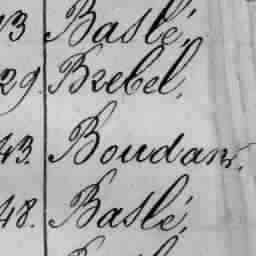 13 Baslé,
29. Brebel,
43. Boudans,
48. Baslé,